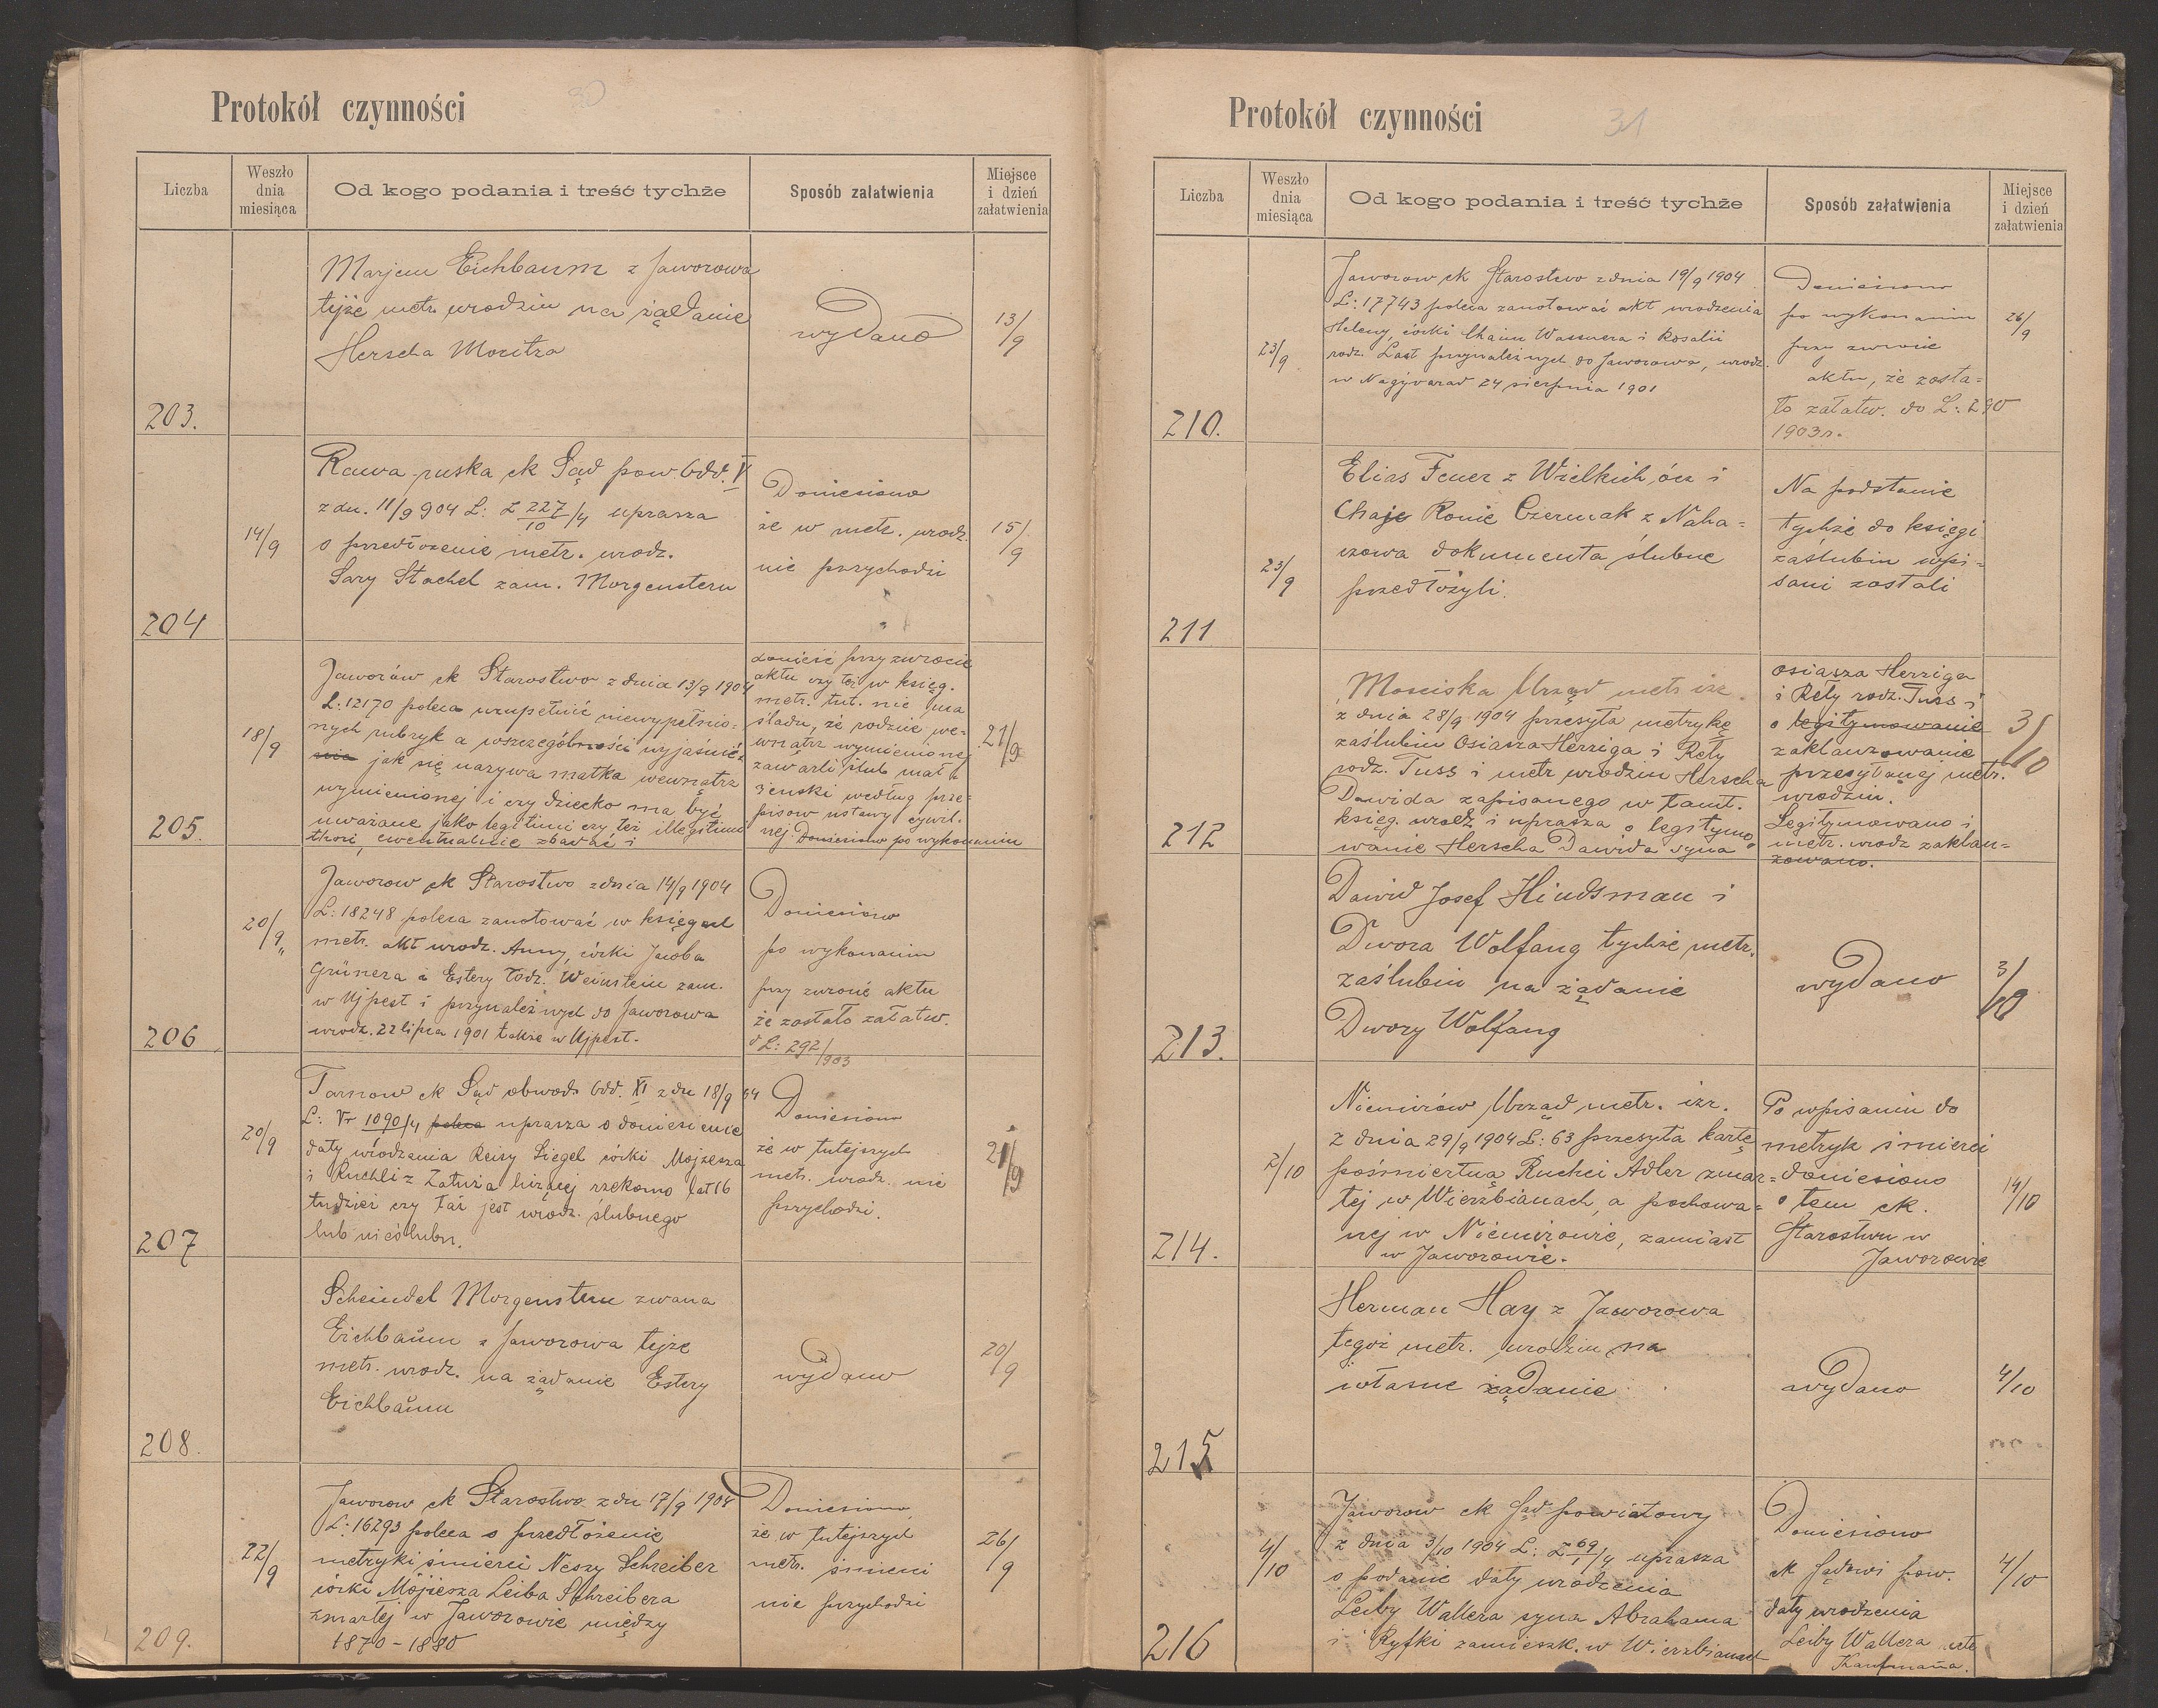 Protokół czynności
30
Liczba
Weszło dnia miesiąca
Od kogo podania i treść tychże
Sposób zalatwienia
Miejsce i dzień załatwienia
203.
Marjem Eichbaum z Jaworowa
tejże metr. urodzin na żądanie
Herscha Moritza
wydano
13/9
204
14/9
Rawa ruska ck Sąd pow. Odd. V
z dn. 11/9 904 L: Z 227/10 /4 uprasza
o przedłożenie metr. urodz.
Sary Stachel zam. Morgenstern
Doniesiono
że w metr. urodz.
nie przychodzi
15/9
205.
18/9
Jaworów ck Starostwo z dnia 13/9 1904
L: 12170 poleca uzupełnić niewypełnio-
nych rubryk a wszczególności wyjaśnić
jak się nazywa matka wewnątrz
wymienionej i czy dziecko ma być
uważane jako legitimi czy też illegitimi
thori, ewentualnie zbadać i
donieść przy zwrocie
aktu czy też w księg.
metr. tut. nie ma
śladu, że rodzice we-
wnątrz wymienionej
zawarli ślub mał-
żenski według prze-
pisow ustawy cywil.
nej. Doniesiono po wykonaniu
21/9
206
20/9
Jaworow ck Starostwo z dnia 14/9 1904
L: 18248 poleca zanotować w księgach
metr. akt urodz. Anny, córki Jacoba
Grünera i Estery rodz. Weinstein zam.
w Ujpest i przynależnych do Jaworowa
urodz. 22 lipca 1901 także w Ujpest.
Doniesiono
po wykonaniu
przy zwrocie aktu
że zostało załatw.
d L: 292/903
207
20/9
Tarnow ck Sąd obwod. Odd. XI z dn 18/9 04
L: Vr 1090/4 poleca uprasza o doniesienie
daty urodzenia Reisy Siegel córki Mojzesza
i Ruchli z Załuża liczącej rzekomo lat 16
tudzież czy taż jest urodz. ślubnego
lub nieślubn.
Doniesiono
że w tutejszych
metr. urodz. nie
przychodzi.
21/9
208.
Scheindel Morgenstern zwana
Eichbaum z Jaworowa tejże
metr. urodz. na żądanie Estery
Eichbaum
wydano
20/9
209.
22/9
Jaworow ck Starostwo z dn 17/9 1904
L: 16293 poleca o przedłożenie
metryki śmierci Neszy Schreiber
córki Mojżesza Leiba Schreibera
zmarłej w Jaworowie między
1870 - 1880
Doniesiono,
że w tutejszych
metr. śmierci
nie przychodzi
26/9
Protokół czynności
31
Liczba
Weszło dnia miesiąca
Od kogo podania i treść tychże
Sposób załatwienia
Miejsce i dzień załatwienia
210.
23/9
Jaworow ck Starostwo z dnia 19/9 1904
L: 17743 poleca zanotować akt urodzenia
Heleny, córki Chaim Wassnera i Rosalii
rodz. Last przynależnych do Jaworowa, urodz.
w Nagyvarad 24 sierpnia 1901
Doniesiono
po wykonaniu
przy zwrocie
aktu, że zosta-
ło załatw. do L: 290
1903 r.
26/9
211
23/9
Elias Feuer z Wielkich ócz i
Chaje Ronie Czermak z Naha-
czowa dokumenta ślubne
przedłożyli.
Na podstawie
tychże do księgi
zaślubin wpi-
sani zostali
212
Mosciska Urząd metr. izr.
z dnia 28/9 1904 przesyła metrykę
zaślubin Osiasza Herziga i Rety
rodz. Tuss i metr urodzin Herscha
Dawida zapisanego w tamt.
księg. urodz. i uprasza o legitymo-
wanie Herscha Dawida syna
Osiasza Herziga
i Rety rodz. Tuss i
o legitymowanie
zaklauzowanie
przesyłanej metr.
urodzin.
Legitymowano i
metr. urodz zaklau-
zowano.
3/10
213.
Dawid Josef Hindsman i
Dwora Wolfang tychże metr.
zaślubin na żądanie
Dwory Wolfang
wydano
3/10
214.
2/10
Niemirów Urząd metr. izr.
z dnia 29/9 1904 L: 63 przesyła kartę
pośmiertną Ruchci Adler zmar-
łej w Wierzbianach, a pochowa-
nej w Niemirowie, zamiast
w Jaworowie.
Po wpisaniu do
metryk śmierci
doniesiono
o tem ck.
Starostwu w
Jaworowie
14/10
215
Herman Hay z Jaworowa
tegoż metr. urodzin na
własne żądanie
wydano
4/10
216
4/10
Jaworow ck Sąd powiatowy
z dnia 3/10 1904 L: Z 69/1 /4 uprasza
o podanie daty urodzenia
Leiby Wallera syna Abrahama
i Ryfki zamieszk. w Wierzbianach
Doniesiono
ck Sądowi pow.
daty urodzenia
Leiby Wallera
Kaufmana.
4/10